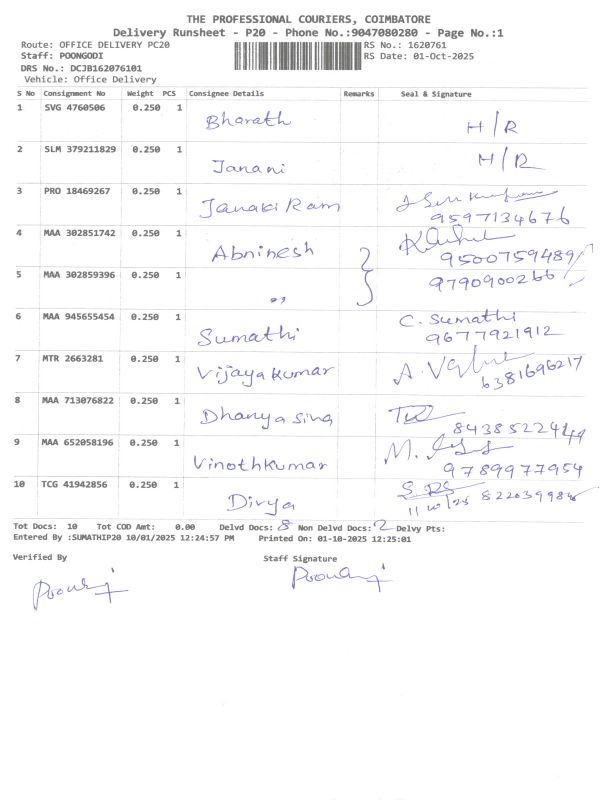 THE PROFESSIONAL COURIERS, COIMBATORE
Delivery Runsheet - P20 - Phone No.:9047080280 - Page No.:1
Route: OFFICE DELIVERY PC20 RS No.: 1620761
Staff: POONGODI RS Date: 01-Oct-2025
DRS No.: DCJB162076101
Vehicle: Office Delivery
S No Consignment No Weight PCS Consignee Details Remarks Seal & Signature
1 SVG 4760506 0.250 1 Bharath H/R
2 SLM 379211829 0.250 1 Janani H/R
3 PRO 18469267 0.250 1 Janaki Ram
9597134676
4 MAA 302851742 0.250 1 Abninesh
9500759489
5 MAA 302859396 0.250 1 " 9790900266
6 MAA 945655454 0.250 1 Sumathi C. Sumathi
9677921912
7 MTR 2663281 0.250 1 Vijaya kumar A.
6381696217
8 MAA 713076822 0.250 1 Dhanya
9 MAA 652058196 0.250 1 Vinothkumar M.
9789977954
10 TCG 41942856 0.250 1 Divya
Tot Docs: 10 Tot COD Amt: 0.00 Delvd Docs: 8 Non Delvd Docs: 2 Delvy Pts:
Entered By :SUMATHIP20 10/01/2025 12:24:57 PM Printed On: 01-10-2025 12:25:01
Verified By Staff Signature